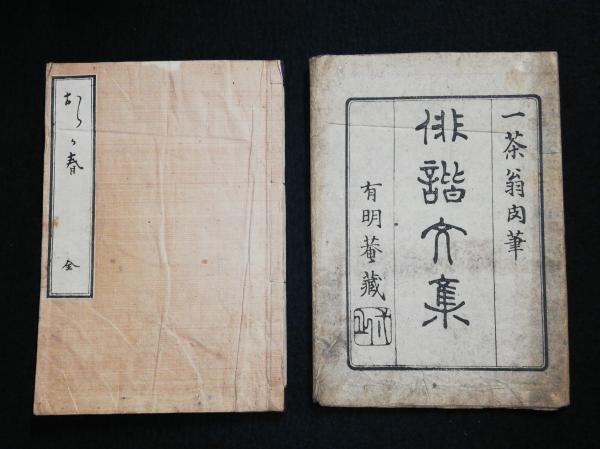 一茶翁肉筆
俳諧文集
有明菴藏
おらか春 全